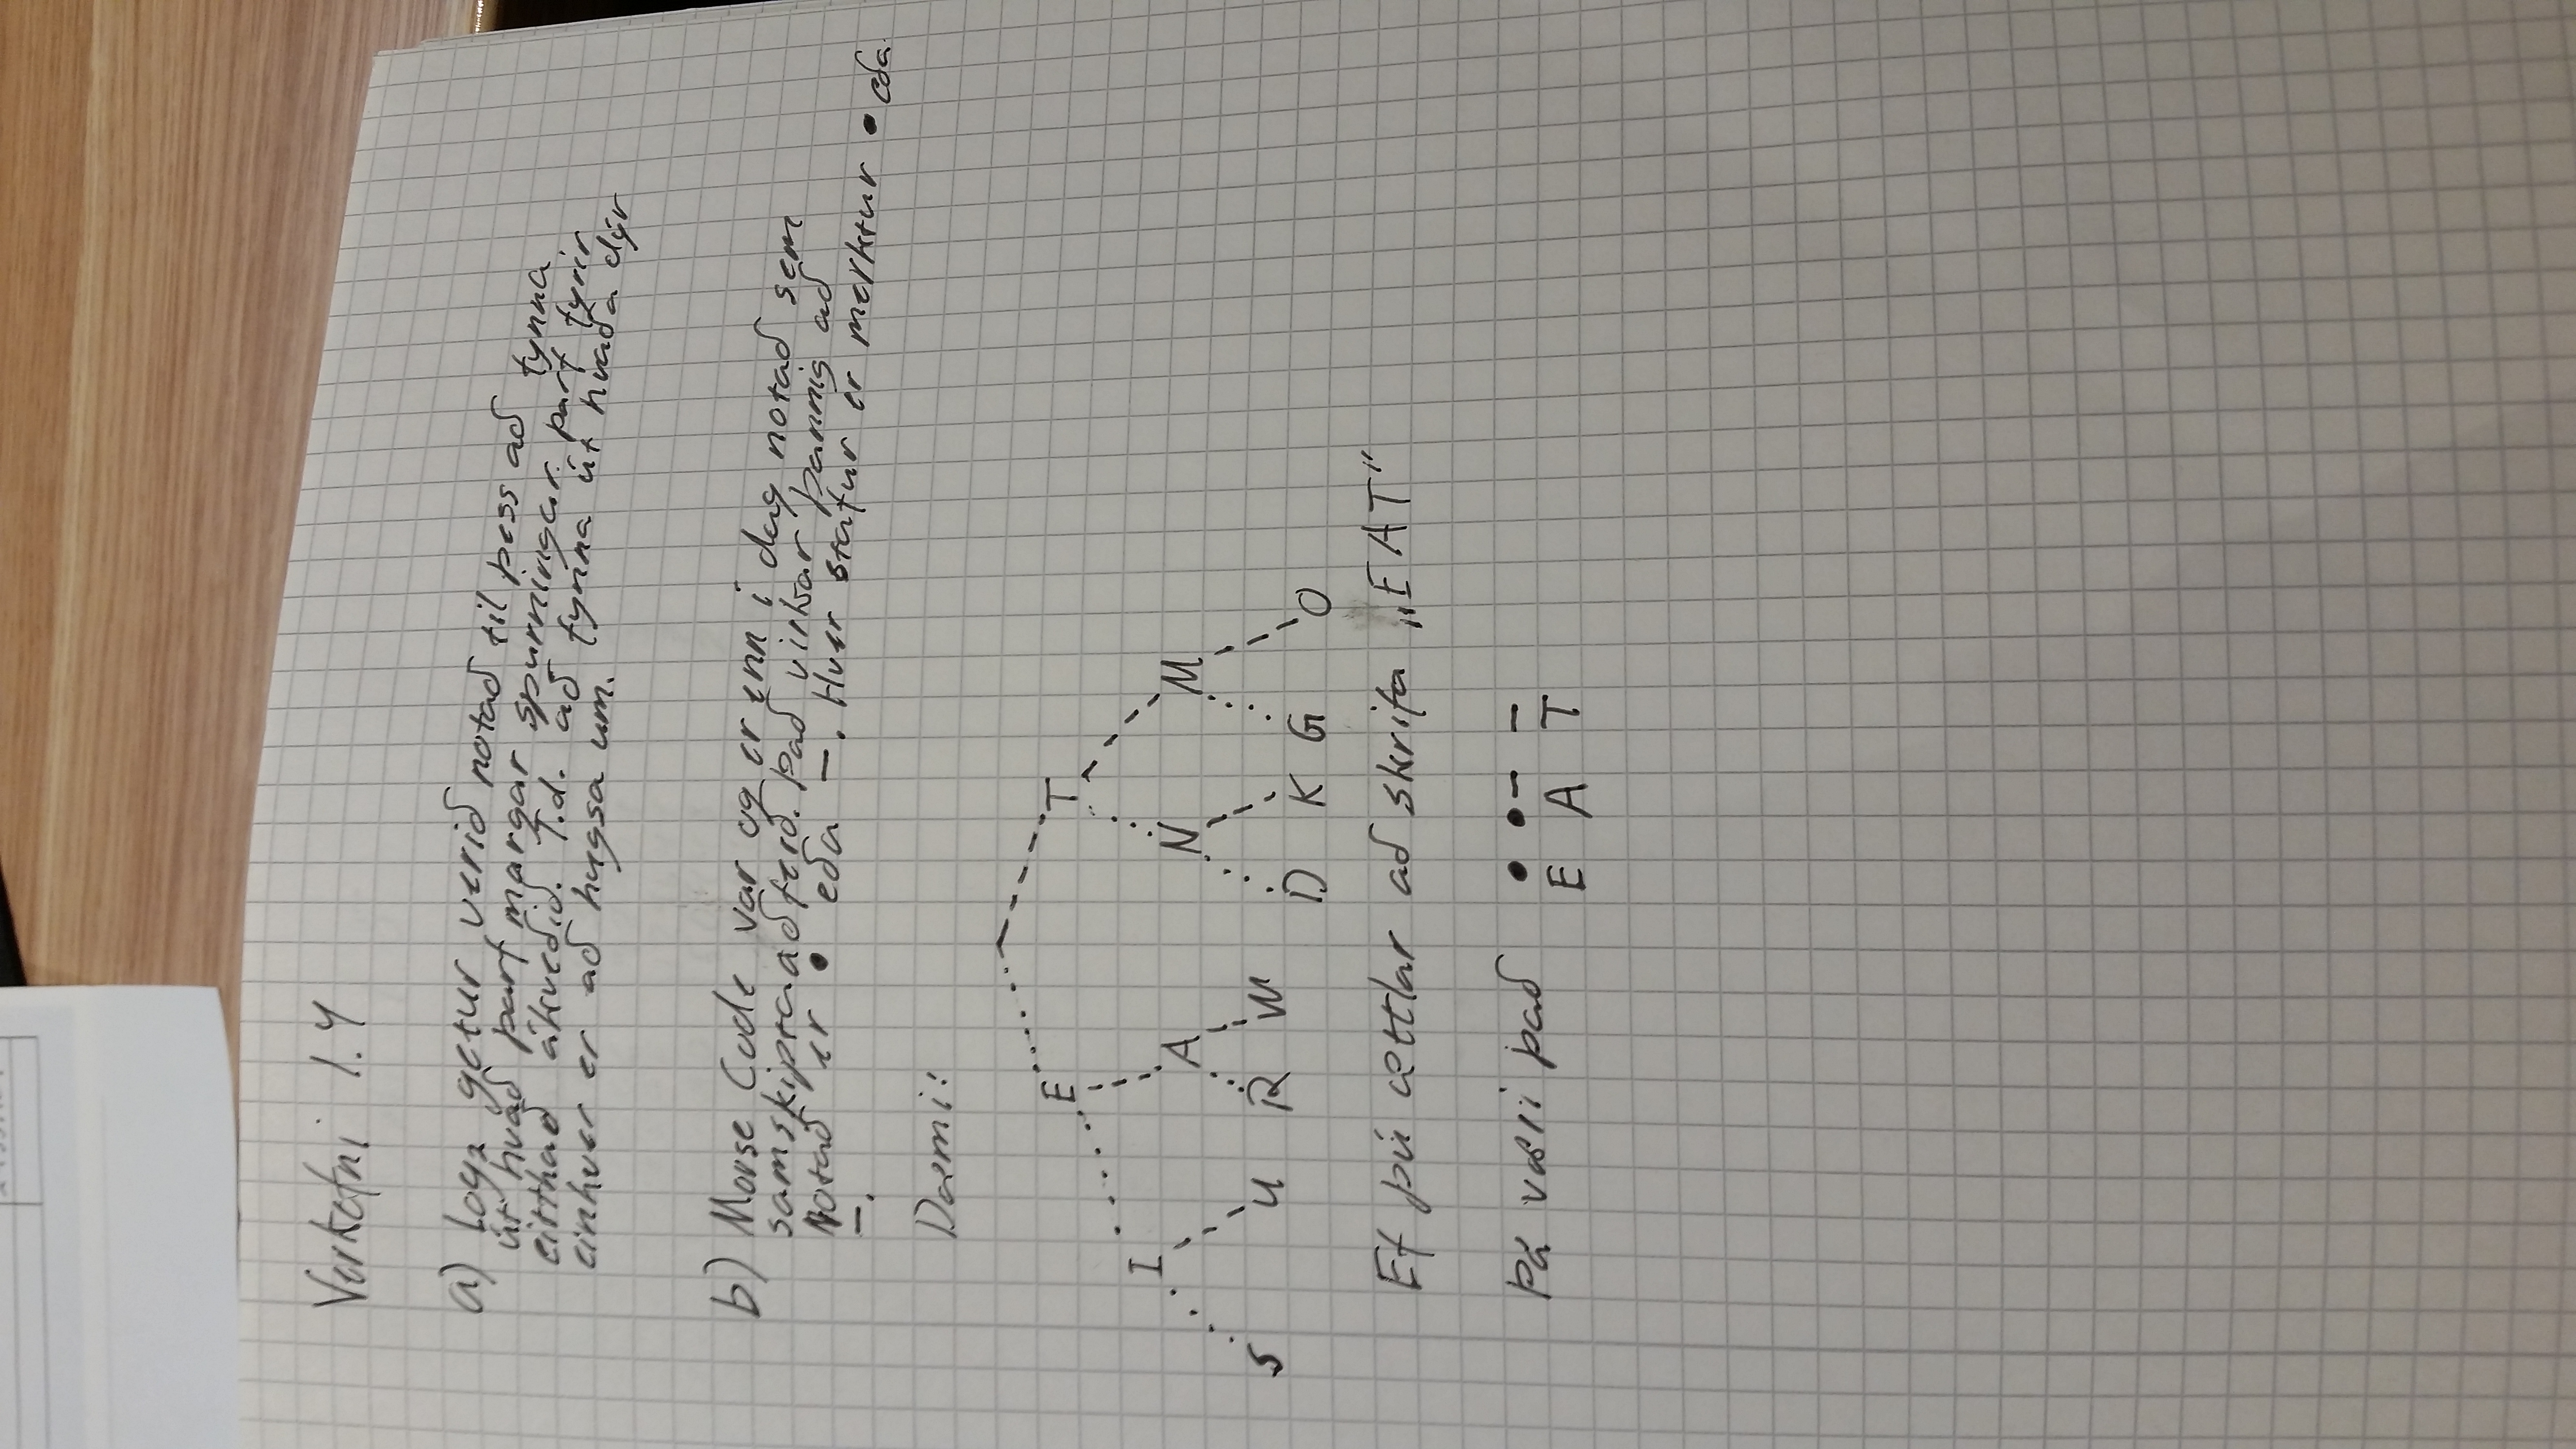 Verkefni 1.4
a) Log₂ getur verið notað til þess að fynna
út hvað þarf margar spurningar þarf fyrir
eitthað ákveðið. T.d. að fynna út hvaða dýr
einhver er að hugsa um.
b) Morse Code var og er enn í dag notað sem
samskiptaaðferð. Það virkar þannig að
Notað er • eða –. Hver stafur er merktur • eða
–.
Dæmi:
E T
I A N M
S U R W D K G O
Ef þú ættlar að skrifa „EAT"
Þá væri það • •– –
E A T